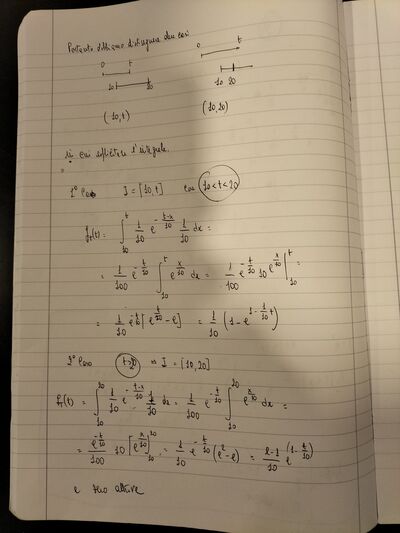 Pertanto dobbiamo distinguere due casi
0 t
10 20
0 t
10 20
(10,t) (10,20)
su cui esplicitare l'integrale.
1° Caso I = [10,t] con 10<t<20
f_T(t) = ∫_{10}^{t} 1/10 e^{-(t-x)/10} 1/10 dx =
= 1/100 e^{-t/10} ∫_{10}^{t} e^{x/10} dx = 1/100 e^{-t/10} 10 e^{x/10} |_{10}^{t} =
= 1/10 e^{-t/10} [e^{t/10} - e] = 1/10 (1 - e^{1 - 1/10 t})
2° Caso t>20 I = [10,20]
f_T(t) = ∫_{10}^{20} 1/10 e^{-(t-x)/10} 1/10 dx = 1/100 e^{-t/10} ∫_{10}^{20} e^{x/10} dx =
= e^{-t/10}/100 10 [e^{x/10}]_{10}^{20} = 1/10 e^{-t/10} (e^2 - e) = (e-1)/10 e^{(1 - t/10)}
e zero altrove